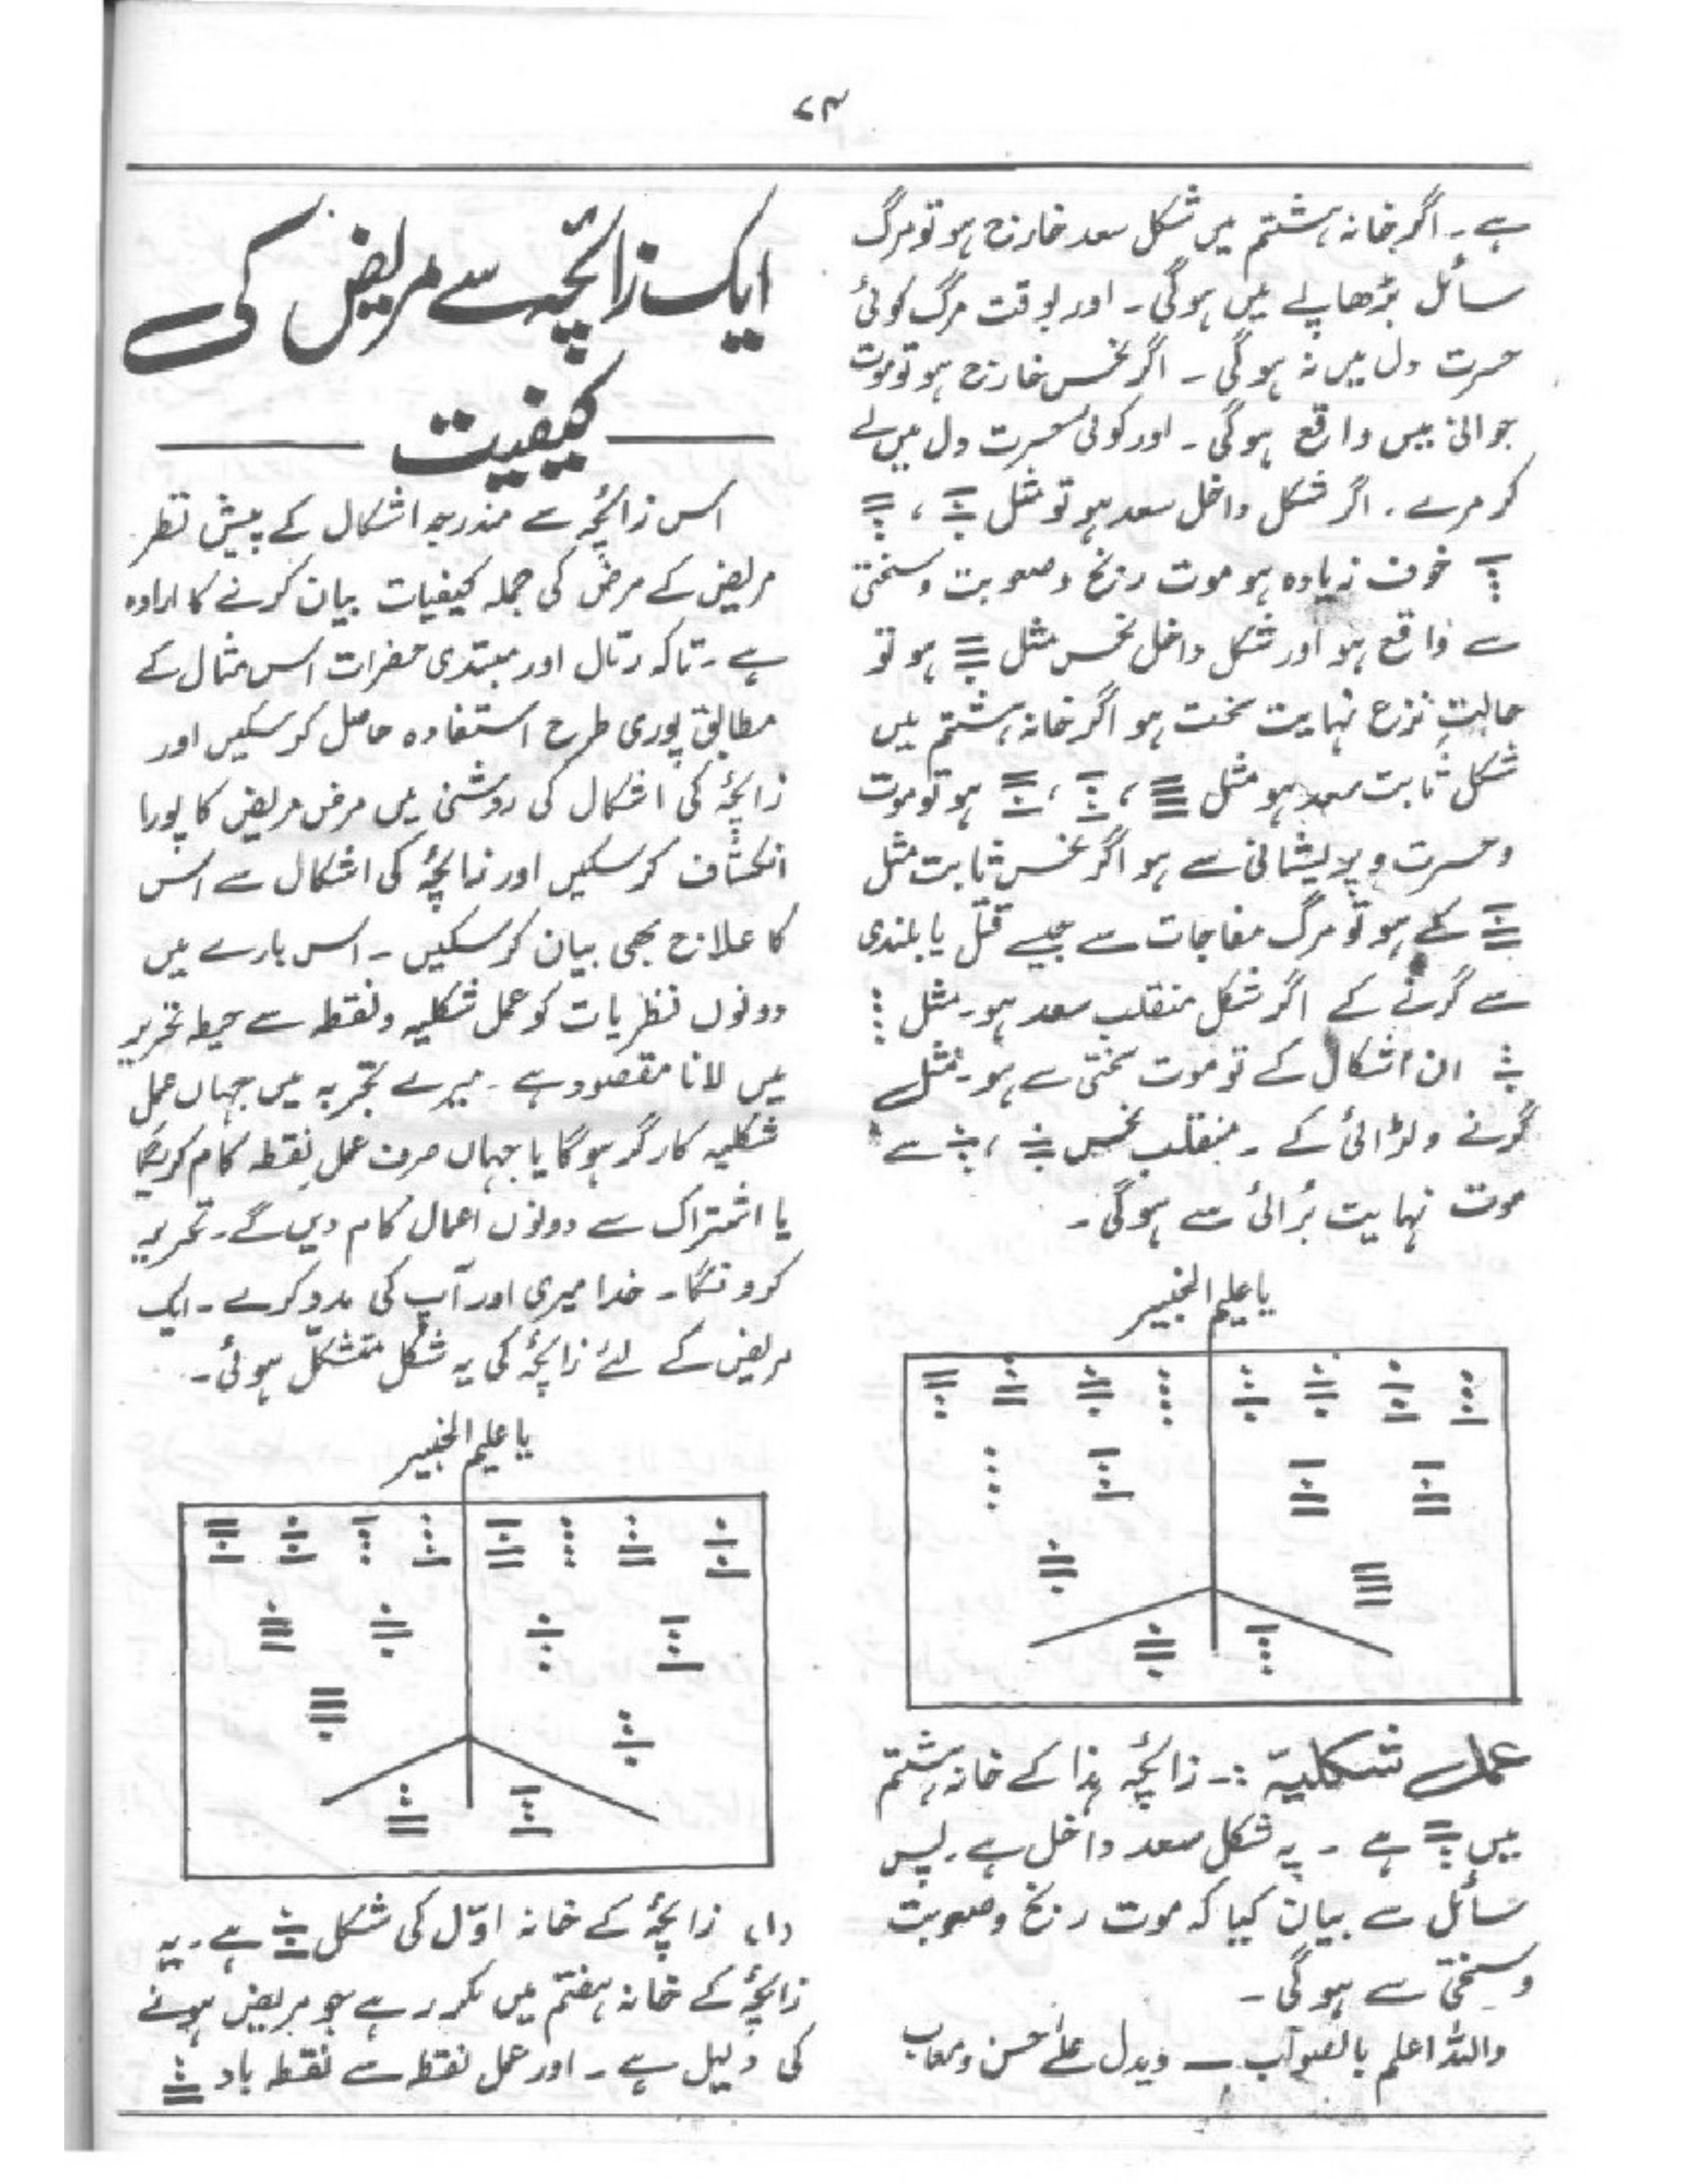 ۷۴
ہے۔ اگر خانہ ہشتم میں شکل سعد خارج ہو تو مرگ
سائل بڑھاپے میں ہوگی۔ اور بوقت مرگ کوئی
حسرت دل میں نہ ہوگی۔ اگر نحس خارج ہو تو موت
جوانی میں واقع ہوگی۔ اور کوئی حسرت دل میں لے
کر مرے۔ اگر شکل داخل سعد ہو تو مثل ،
خوف زیادہ ہو موت رنج وصعوبت وسختی
سے واقع ہو اور شکل داخل نحس مثل ہو تو
حالتِ نزع نہایت سخت ہو اگر خانہ ہشتم میں
شکل ثابت سعد ہو مثل ، ، ہو تو موت
وحسرت وپریشانی سے ہو اگر نحس ثابت مثل
کے ہو تو مرگ مفاجات سے جیسے قتل یا بلندی
سے گرنے کے اگر شکل منقلب سعد ہو۔ مثل
ان اشکال کے تو موت سختی سے ہو۔ مثل
گرنے ولڑائی کے۔ منقلب نحس ، سے
موت نہایت بُرائی سے ہوگی۔
یاعلیم الخبیر
عمل شکلیہ :۔ زائچہ ہذا کے خانہ ہشتم
میں ہے۔ یہ شکل سعد داخل ہے۔ پس
سائل سے بیان کیا کہ موت رنج وصعوبت
وسختی سے ہوگی۔
واللہ اعلم بالصواب
ایک زائچہ سے مریض کی
کیفیت
اس زائچہ سے مندرجہ اشکال کے پیش نظر
مریض کے مرض کی جملہ کیفیات بیان کرنے کا ارادہ
ہے۔ تاکہ رمّال اور مبتدی حضرات اس مثال کے
مطابق پوری طرح استفادہ حاصل کرسکیں اور
زائچہ کی اشکال کی روشنی میں مرض مریض کا پورا
انکشاف کرسکیں اور زائچہ کی اشکال سے اس
کا علاج بھی بیان کرسکیں۔ اس بارے میں
دونوں نظریات کو عمل شکلیہ ونقطہ سے حیطہ تحریر
میں لانا مقصود ہے۔ میرے تجربہ میں جہاں عمل
شکلیہ کارگر ہوگا یا جہاں صرف عمل نقطہ کام کریگا
یا اشتراک سے دونوں اعمال کام دیں گے۔ تحریر
کرونگا۔ خدا میری اور آپ کی مدد کرے۔ ایک
مریض کے لئے زائچہ کی یہ شکل متشکّل ہوئی۔
یاعلیم الخبیر
(۱) زائچہ کے خانہ اوّل کی شکل ہے۔ یہ
زائچہ کے خانہ ہفتم میں مکرر ہے جو مریض ہونے
کی دلیل ہے۔ اور عمل نقطہ سے نقطہ باد